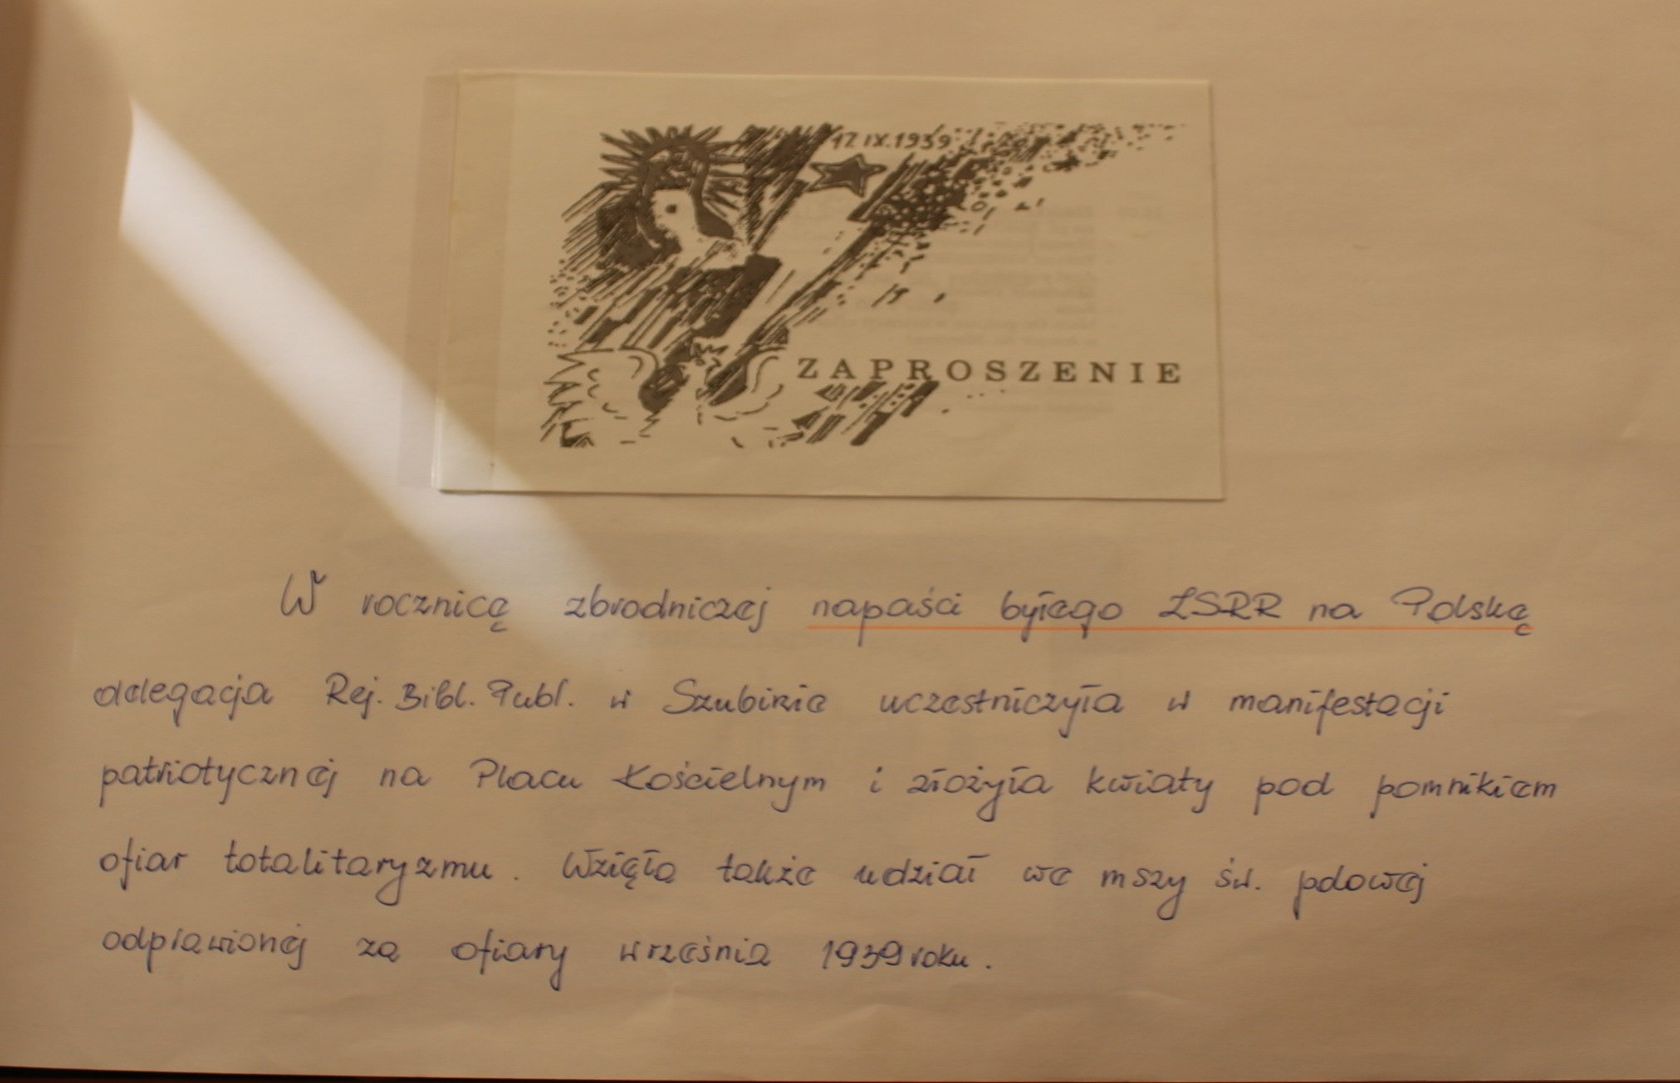 17 IX.1939
ZAPROSZENIE
W rocznicę zbrodniczej napaści byłego ZSRR na Polskę
delegacja Rej. Bibl. Publ. w Szubinie uczestniczyła w manifestacji
patriotycznej na Placu Kościelnym i złożyła kwiaty pod pomnikiem
ofiar totalitaryzmu. Wzięła także udział we mszy św. polowej
odprawionej za ofiary września 1939 roku.